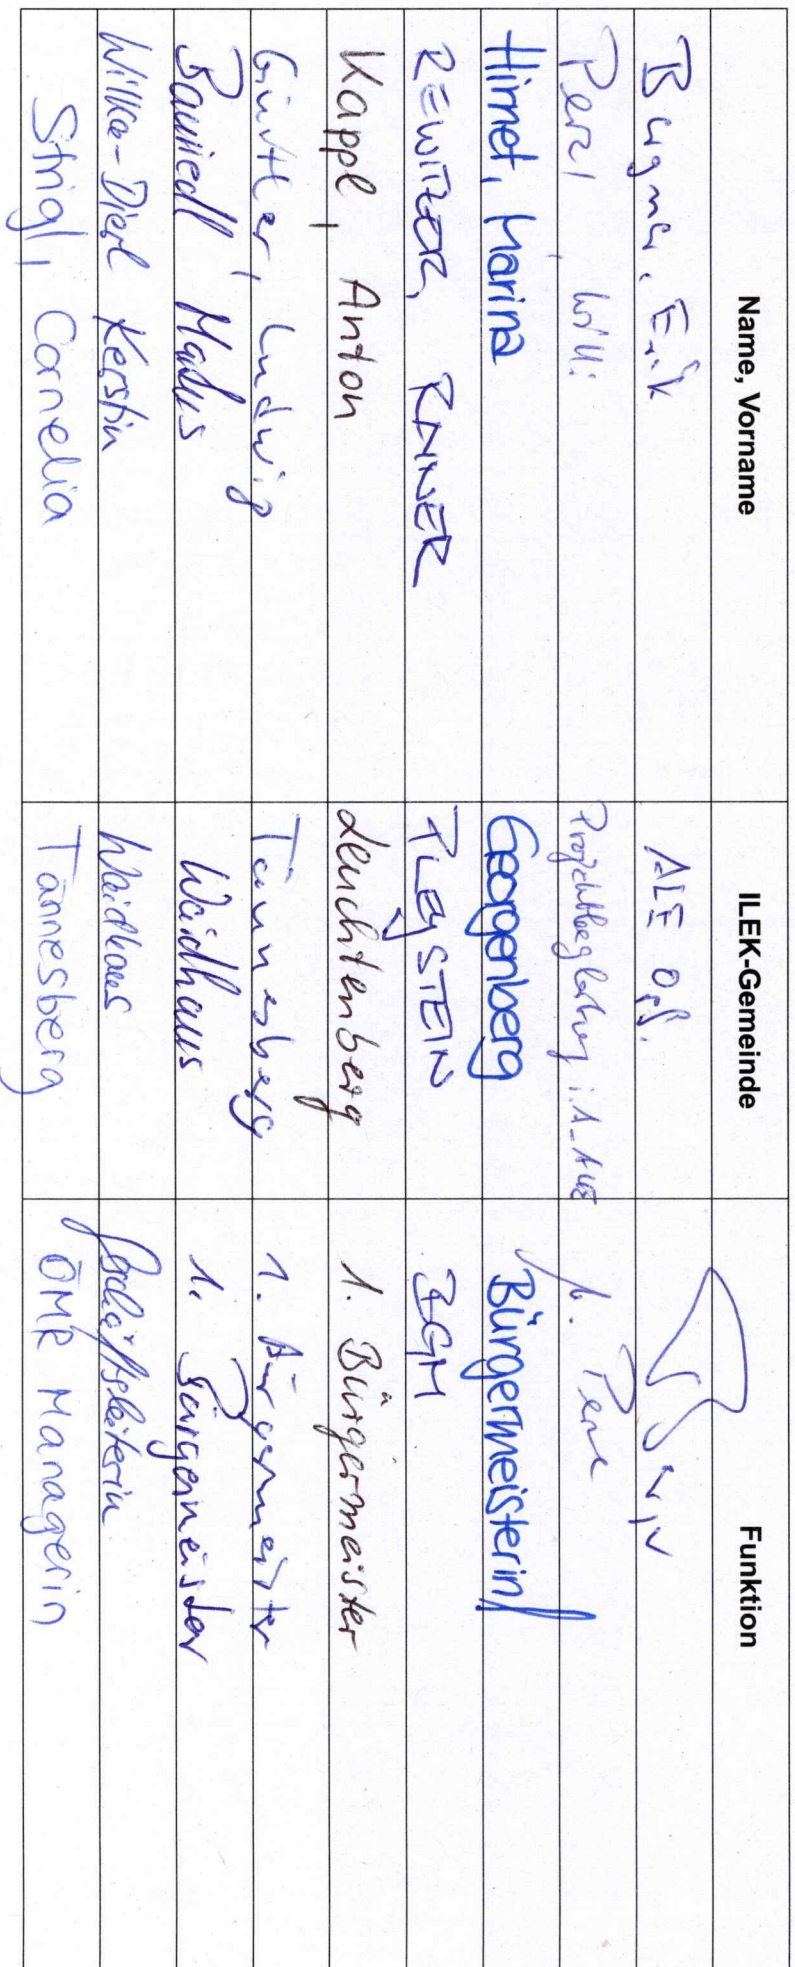 Name, Vorname ILEK-Gemeinde Funktion
Erik ALE Opf.
Perzl, Willi Projektbegleitung i.A.
Hirnet, Marina Georgenberg Bürgermeisterin
REWITZER, RAINER PLEYSTEIN BGM
Kappl, Anton Leuchtenberg 1. Bürgermeister
Gürtler, Ludwig Tännesberg 1. Bürgermeister
Bauriedl, Markus Waidhaus 1. Bürgermeister
Wilka-Dierl Kerstin Waidhaus Geschäftsleiterin
Strigl, Cornelia Tännesberg ÖMR Managerin